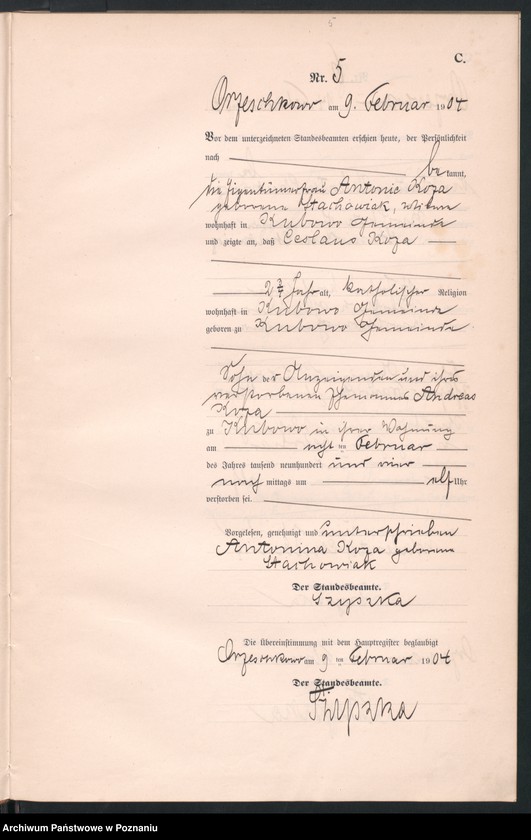 5
C.
Nr. 5
Orzeschkowo am 9. Februar 1904
Vor dem unterzeichneten Standesbeamten erschien heute, der Persönlichkeit
nach be kannt,
die Eigentümerfrau Antonie Koza
geborene Stachowiak,
wohnhaft in Kubowo Gemeinde
und zeigte an, daß Ceslaus Koza
2 Jahr alt, katholischer Religion
wohnhaft in Kubowo Gemeinde
geboren zu Kubowo Gemeinde
Sohn der Anzeigenden und ihres
verstorbenen Ehemannes Andreas
Koza
zu Kubowo in ihrer Wohnung
am acht ten Februar
des Jahres tausend neunhundert und vier
nach mittags um elf Uhr
verstorben sei.
Vorgelesen, genehmigt und unterschrieben
Antonina Koza geborene
Stachowiak
Der Standesbeamte.
Szyszka
Die Übereinstimmung mit dem Hauptregister beglaubigt
Orzeschkowo am 9 ten Februar 1904
Der Standesbeamte.
Szyszka
Archiwum Państwowe w Poznaniu